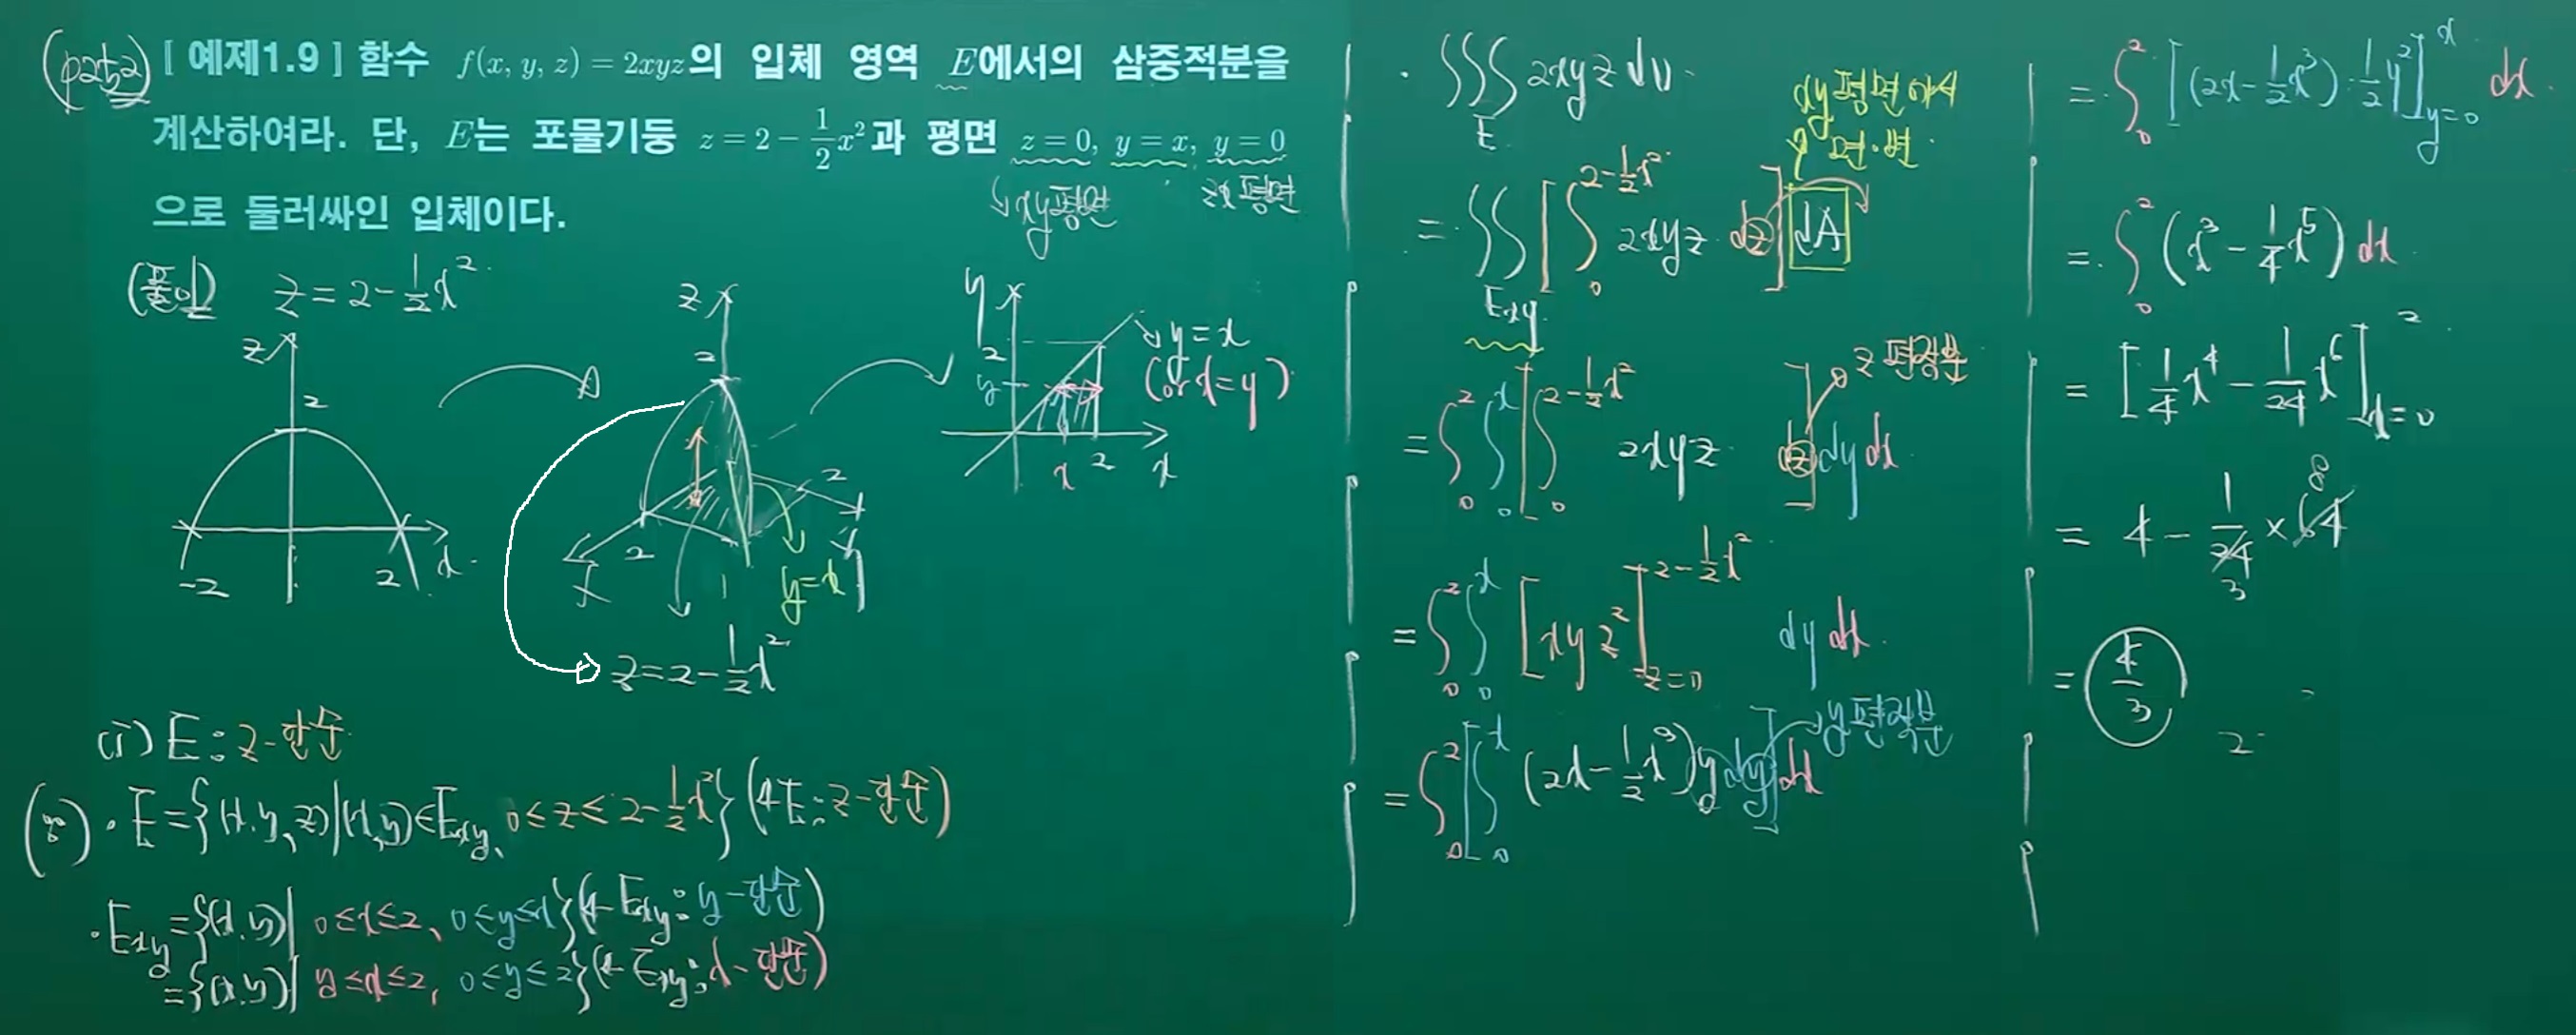 (p252) [ 예제1.9 ] 함수 f(x, y, z) = 2xyz의 입체 영역 E에서의 삼중적분을
계산하여라. 단, E는 포물기둥 z = 2 - 1/2 x²과 평면 z = 0, y = x, y = 0
으로 둘러싸인 입체이다.
↳ xy평면 zx평면
(풀이) z = 2 - 1/2 x²
z
2
-2 2 x
z
2
2
2
x
y
y=x
z = 2 - 1/2 x²
y
2
y
x 2 x
y=x
(or x=y)
(i) E : z-단순
· E = {(x,y,z)|(x,y)∈Exy, 0≤z≤2-1/2 x²} (← E : z-단순)
· Exy = {(x,y)| 0≤x≤2, 0≤y≤x} (← Exy : y-단순)
= {(x,y)| y≤x≤2, 0≤y≤2} (← Exy : x-단순)
· ∭_E 2xyz dV
xy평면에서
= ∬_Exy [∫_0^{2-1/2 x²} 2xyz dz] dA
z 편적분
= ∫_0^2 ∫_0^x [∫_0^{2-1/2 x²} 2xyz dz] dy dx
= ∫_0^2 ∫_0^x [xyz²]_{z=0}^{2-1/2 x²} dy dx
y 편적분
= ∫_0^2 [∫_0^x (2x - 1/2 x³) y dy] dx
= ∫_0^2 [(2x - 1/2 x³) · 1/2 y²]_{y=0}^x dx
= ∫_0^2 (x³ - 1/4 x⁵) dx
= [1/4 x⁴ - 1/24 x⁶]_{x=0}^2
= 4 - 1/24 × 64
3 8
= 4/3